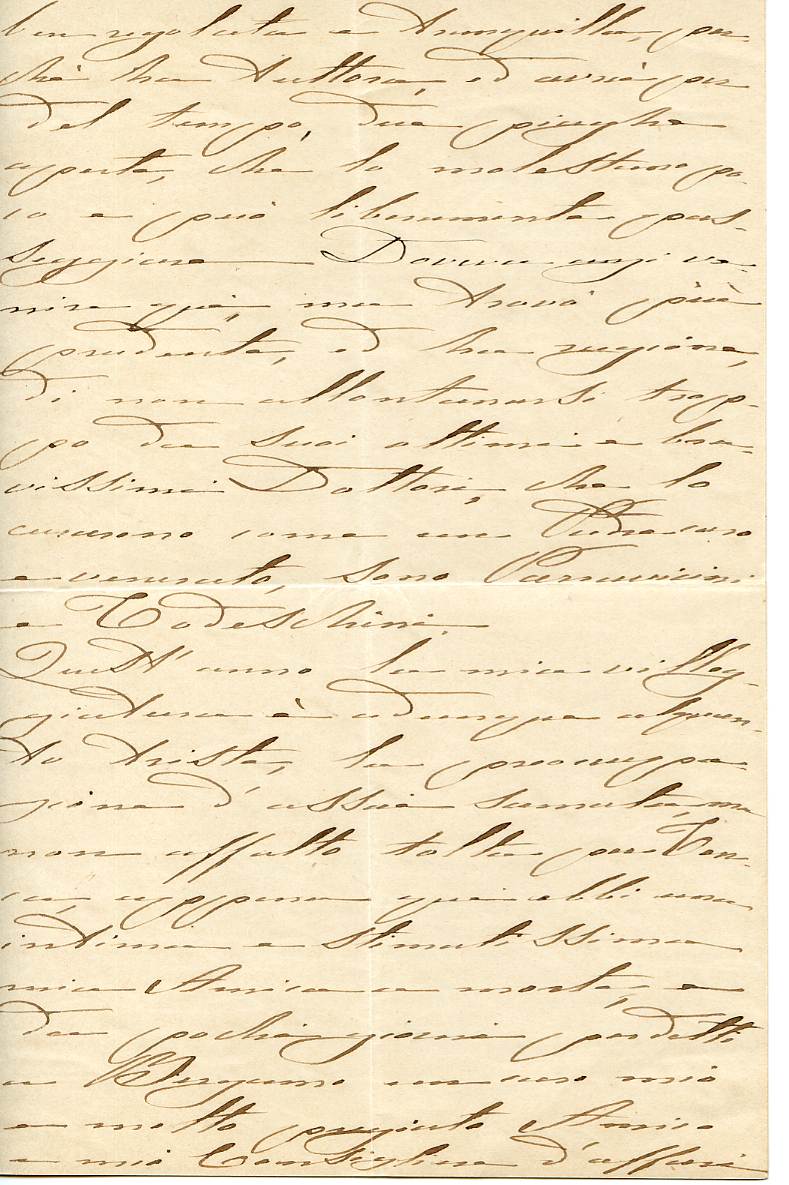 ben regolata e tranquilla, per-
chè ha tuttora, ed avrà per
del tempo, due piaghe
aperte, che lo molestano po-
co e può liberamente pas-
seggiare Doveva anzi ve-
nire quì, ma trovò più
prudente, ed ha ragione,
di non allontanarsi trop-
po da suoi ottimi e bra-
vissimi Dottori, che lo
curarono come un Padre caro
e venerato, sono Parravicini
e Todeschini.
Quest'anno la mia villeg-
giatura è adunque alquan-
to trista, la preoccupa-
zione d'assai scemata, ma
non affatto tolta per
appena qui ebbi una
intima e stimatissima
mia Amica a morte, e
da pochi giorni perdetti
a Bergamo un caro mio
e molto pregiato Amico
e mio Consigliere d'affari